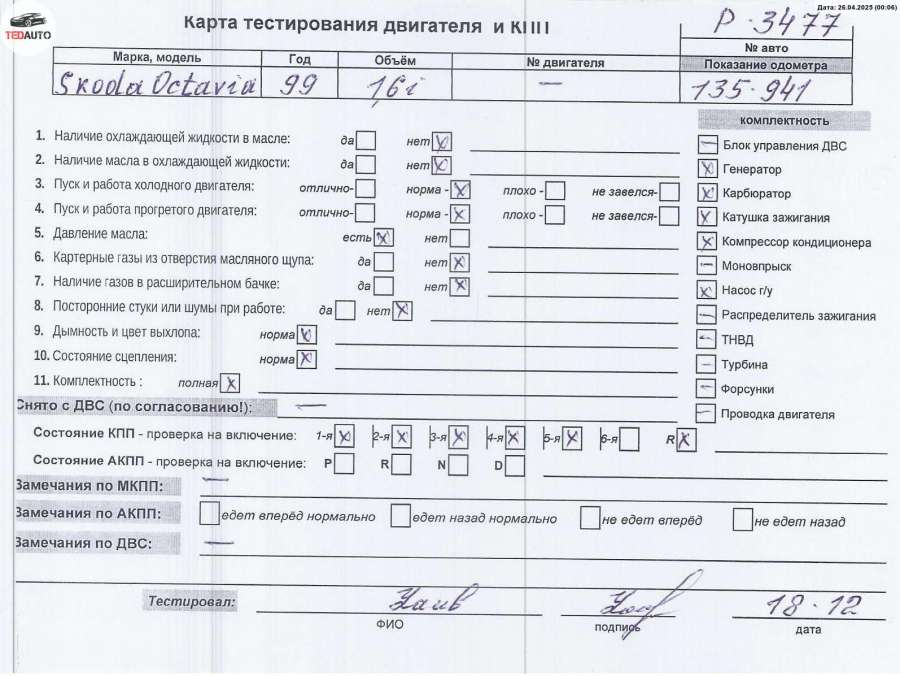 Дата: 26.04.2025 (00:06)
TEDAUTO
Карта тестирования двигателя и КПП
P-3477
№ авто
Марка, модель Год Объём № двигателя Показание одометра
Skoda Octavia 99 1,6i — 135-941
комплектность
1. Наличие охлаждающей жидкости в масле: да нет X
2. Наличие масла в охлаждающей жидкости: да нет X
3. Пуск и работа холодного двигателя: отлично- норма - X плохо - не завелся-
4. Пуск и работа прогретого двигателя: отлично- норма - X плохо - не завелся-
5. Давление масла: есть X нет
6. Картерные газы из отверстия масляного щупа: да нет X
7. Наличие газов в расширительном бачке: да нет X
8. Посторонние стуки или шумы при работе: да нет X
9. Дымность и цвет выхлопа: норма X
10. Состояние сцепления: норма X
11. Комплектность : полная X
— Блок управления ДВС
X Генератор
X Карбюратор
X Катушка зажигания
X Компрессор кондиционера
— Моновпрыск
X Насос г/у
— Распределитель зажигания
— ТНВД
— Турбина
— Форсунки
— Проводка двигателя
Снято с ДВС (по согласованию!): —
Состояние КПП - проверка на включение: 1-я X 2-я X 3-я X 4-я X 5-я X 6-я R X
Состояние АКПП - проверка на включение: P R N D
Замечания по МКПП: —
Замечания по АКПП: едет вперёд нормально едет назад нормально не едет вперёд не едет назад
Замечания по ДВС: —
Тестировал: 18-12
ФИО подпись дата